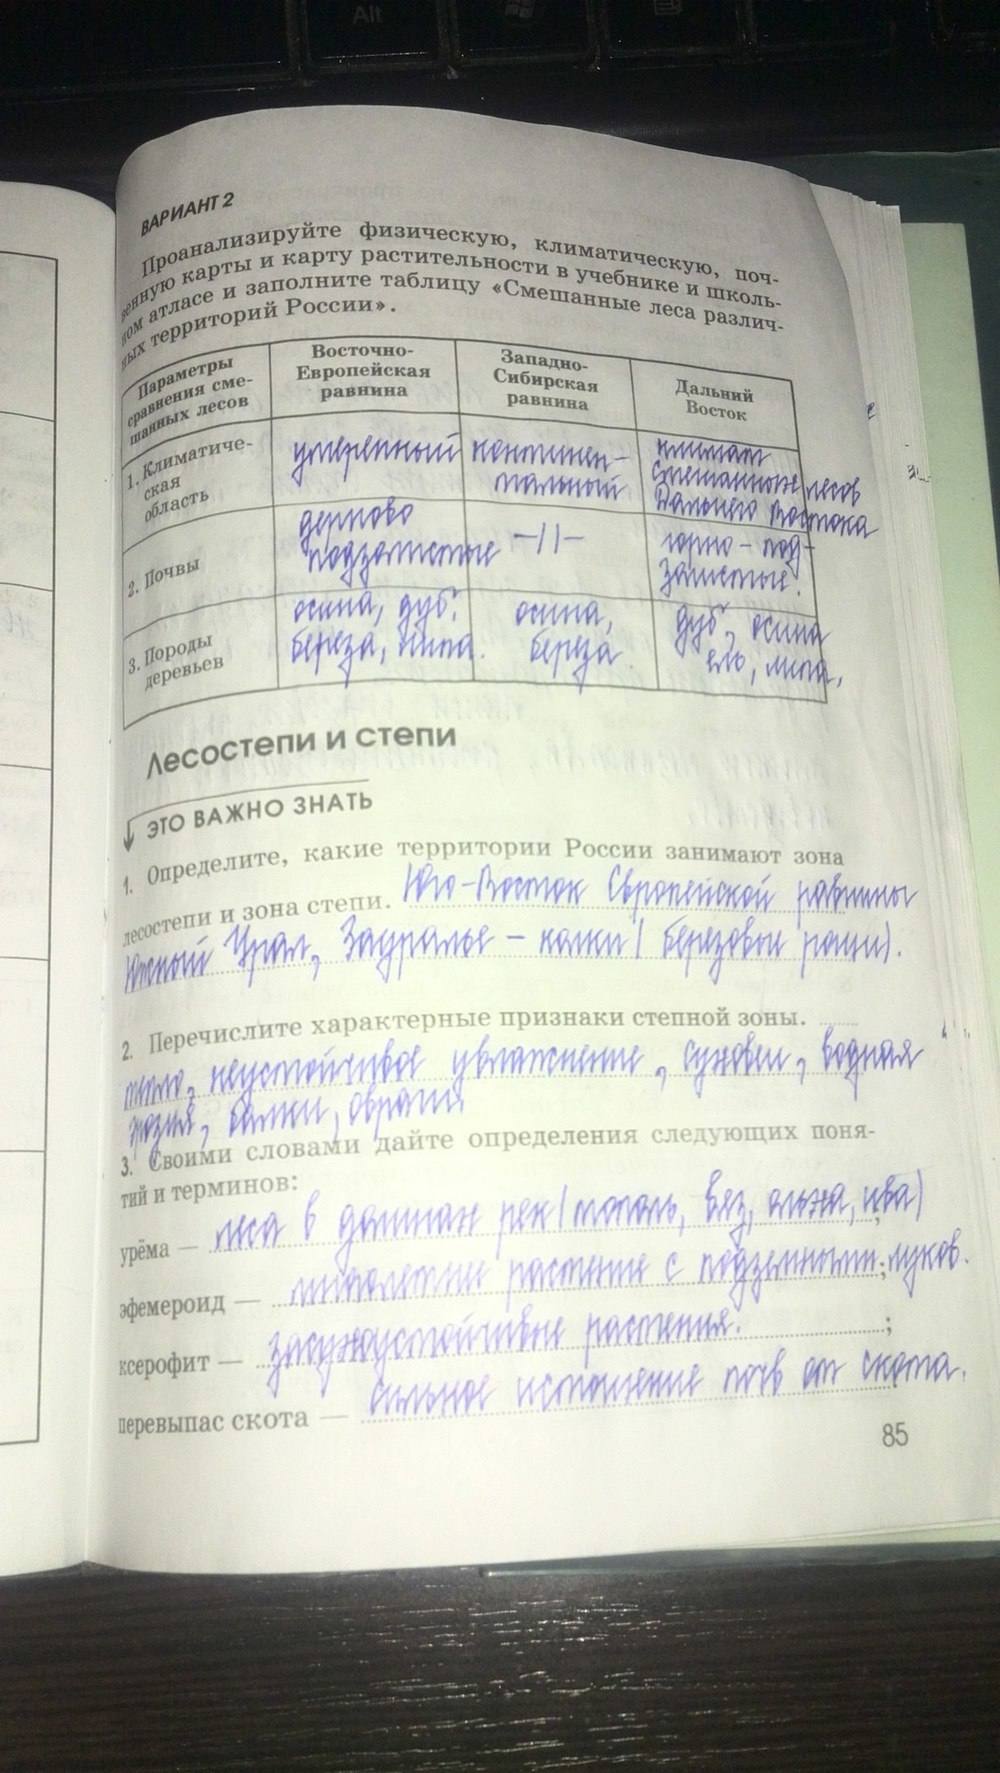 Alt
ВАРИАНТ 2
Проанализируйте физическую, климатическую, поч-
венную карты и карту растительности в учебнике и школь-
ном атласе и заполните таблицу «Смешанные леса различ-
ных территорий России».
Параметры
сравнения сме-
шанных лесов
Восточно-
Европейская
равнина
Западно-
Сибирская
равнина
Дальний
Восток
1. Климатиче-
ская
область
умеренный
континен-
тальный
климат
смешанные лесов
Дальнего Востока
2. Почвы
дерново
подзолистые
-//-
горно-под-
золистые.
3. Породы
деревьев
осина, дуб.
береза, липа.
осина,
береза.
дуб, осина
ель, липа,
Лесостепи и степи
ЭТО ВАЖНО ЗНАТЬ
1. Определите, какие территории России занимают зона
лесостепи и зона степи. Юго-Восток Европейской равнины
Южный Урал, Зауралье - колки (березовые рощи).
2. Перечислите характерные признаки степной зоны.
тепло, неустойчивое увлажнение, суховеи, водная
эрозия, балки, овраги
3. Своими словами дайте определения следующих поня-
тий и терминов:
урёма — леса в долинах рек (тополь, вяз, ольха, ива)
эфемероид — многолетние растение с подземными; луков.
ксерофит — засухоустойчивые растения. ;
перевыпас скота — сильное истощение почв от скота.
85